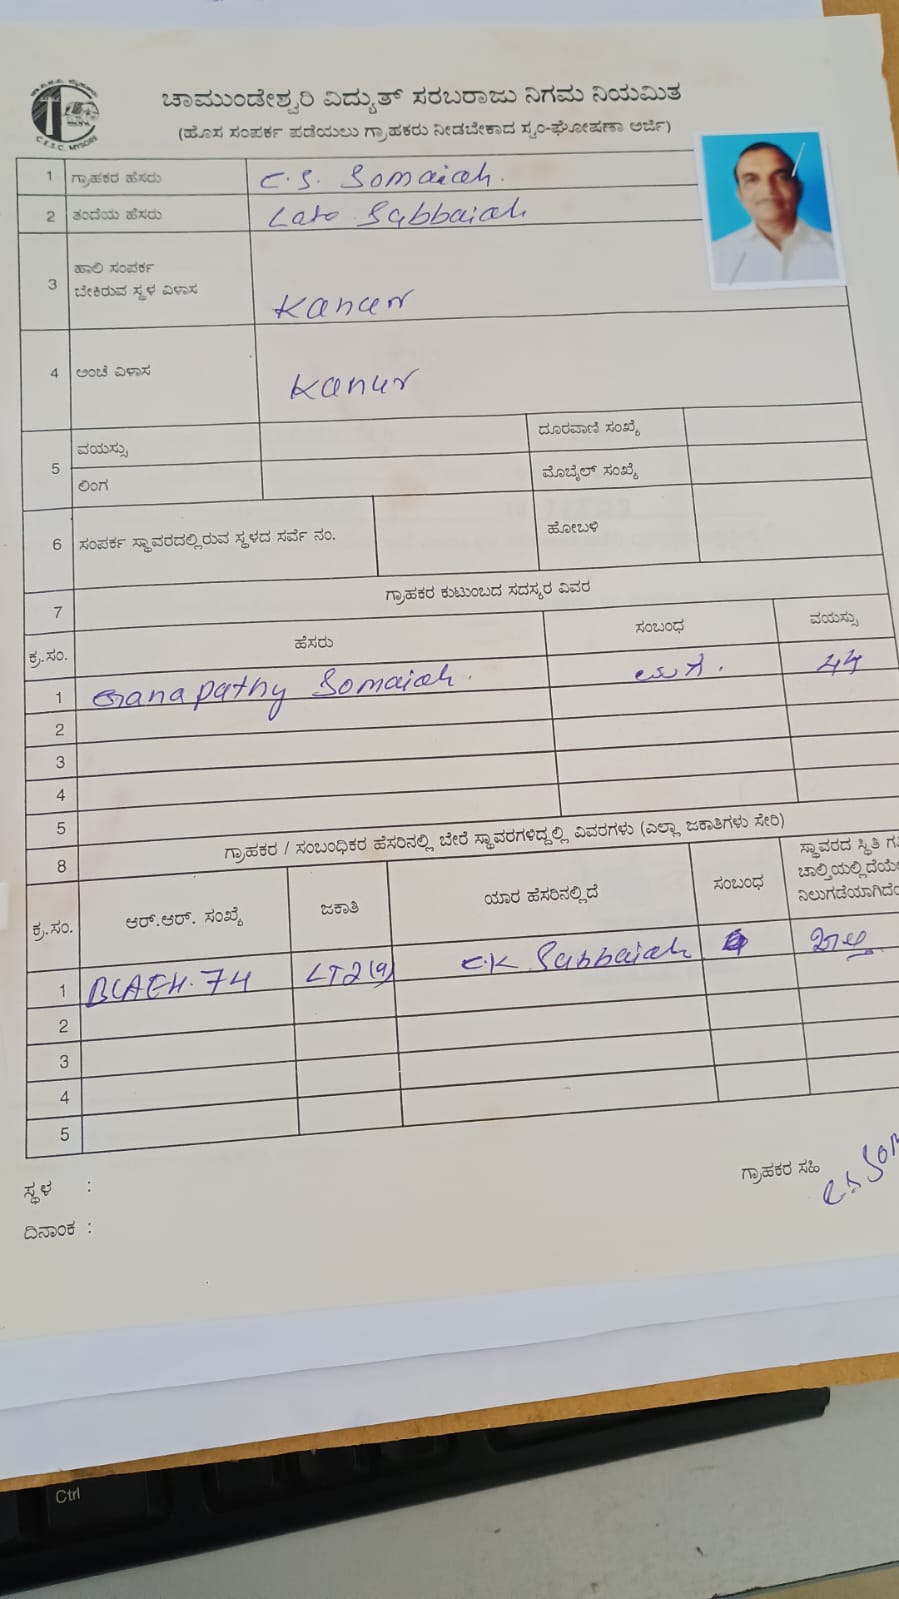 ಚಾಮುಂಡೇಶ್ವರಿ ವಿದ್ಯುತ್ ಸರಬರಾಜು ನಿಗಮ ನಿಯಮಿತ
(ಹೊಸ ಸಂಪರ್ಕ ಪಡೆಯಲು ಗ್ರಾಹಕರು ನೀಡಬೇಕಾದ ಸ್ವಂ-ಘೋಷಣಾ ಅರ್ಜಿ)
C.E.S.C. MYSORE
1 ಗ್ರಾಹಕರ ಹೆಸರು C.S. Somaiah.
2 ತಂದೆಯ ಹೆಸರು Late Subbaiah
3 ಹಾಲಿ ಸಂಪರ್ಕ
ಬೇಕಿರುವ ಸ್ಥಳ ವಿಳಾಸ Kanur
4 ಅಂಚೆ ವಿಳಾಸ Kanur
5 ವಯಸ್ಸು ದೂರವಾಣಿ ಸಂಖ್ಯೆ
ಲಿಂಗ ಮೊಬೈಲ್ ಸಂಖ್ಯೆ
6 ಸಂಪರ್ಕ ಸ್ಥಾವರದಲ್ಲಿರುವ ಸ್ಥಳದ ಸರ್ವೆ ನಂ. ಹೋಬಳಿ
7 ಗ್ರಾಹಕರ ಕುಟುಂಬದ ಸದಸ್ಯರ ವಿವರ
ಕ್ರ.ಸಂ. ಹೆಸರು ಸಂಬಂಧ ವಯಸ್ಸು
1 Ganapathy Somaiah. 44
2
3
4
5
8 ಗ್ರಾಹಕರ / ಸಂಬಂಧಿಕರ ಹೆಸರಿನಲ್ಲಿ ಬೇರೆ ಸ್ಥಾವರಗಳಿದ್ದಲ್ಲಿ ವಿವರಗಳು (ಎಲ್ಲಾ ಜಕಾತಿಗಳು ಸೇರಿ)
ಕ್ರ.ಸಂ. ಆರ್.ಆರ್. ಸಂಖ್ಯೆ ಜಕಾತಿ ಯಾರ ಹೆಸರಿನಲ್ಲಿದೆ ಸಂಬಂಧ ಸ್ಥಾವರದ ಸ್ಥಿತಿ
1 LT2(a) C.K Subbaiah
2
3
4
5
ಸ್ಥಳ :
ಗ್ರಾಹಕರ ಸಹಿ
ದಿನಾಂಕ :
Ctrl